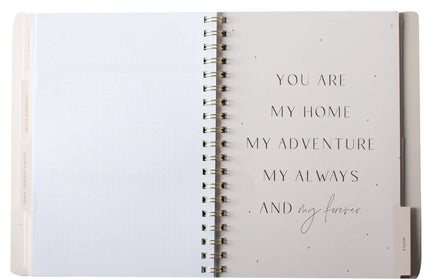 YOU ARE
MY HOME
MY ADVENTURE
MY ALWAYS
AND my forever